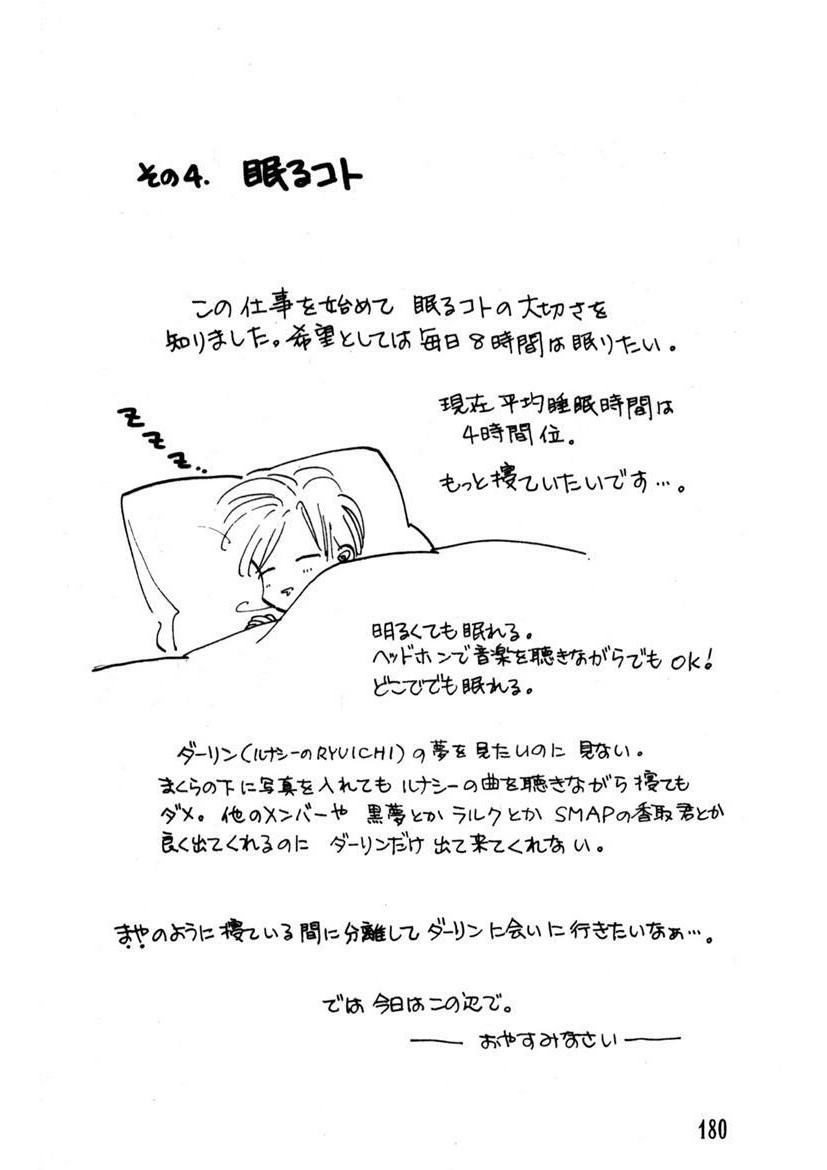 その4. 眠るコト
この仕事を始めて 眠るコトの大切さを
知りました。希望としては毎日8時間は眠りたい。
現在平均睡眠時間は
4時間位。
もっと寝ていたいです…。
zzz..
明るくても眠れる。
ヘッドホンで音楽を聴きながらでもOK!
どこででも眠れる。
ダーリン(ルナシーのRYUICHI)の夢を見たいのに見ない。
まくらの下に写真を入れてもルナシーの曲を聴きながら寝ても
ダメ。他のメンバーや 黒夢とかラルクとか SMAPの香取君とか
良く出てくれるのに ダーリンだけ出て来てくれない。
まやのように寝ている間に分離してダーリンに会いに行きたいなぁ…。
では今日はこの辺で。
── おやすみなさい ──
180